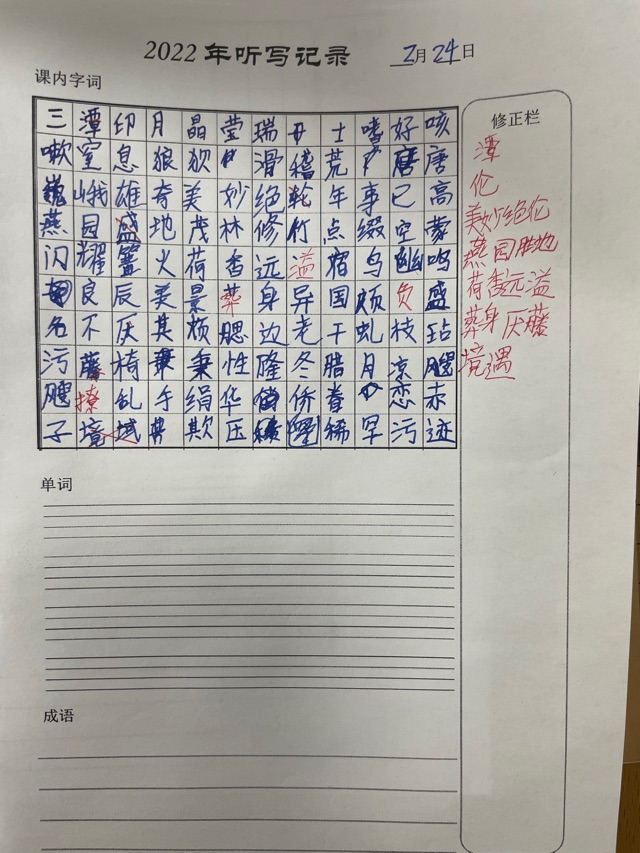 2022年听写记录 2月24日
课内字词
三潭印月晶莹瑞丹士嗜好咳
嗽室息狼狈滑稽荒唐唐
巍峨雄奇美妙绝轮年事已高
燕园盛地茂林修竹点缀空蒙
闪耀篝火荷香远溢宿鸟幽鸣
良辰美景葬身异国烦负盛
名不厌其烦腮边老干虬枝玷
污藤椅秉性隆冬腊月凉飕
飕撩乱手绢华侨眷恋赤
子境域欺压稀罕污迹
修正栏
潭
伦
美妙绝伦
燕园胜地
荷香远溢
葬身 厌藤
境遇
单词
成语